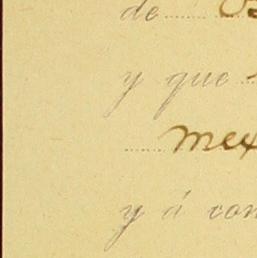 de
y que
mex
y á con